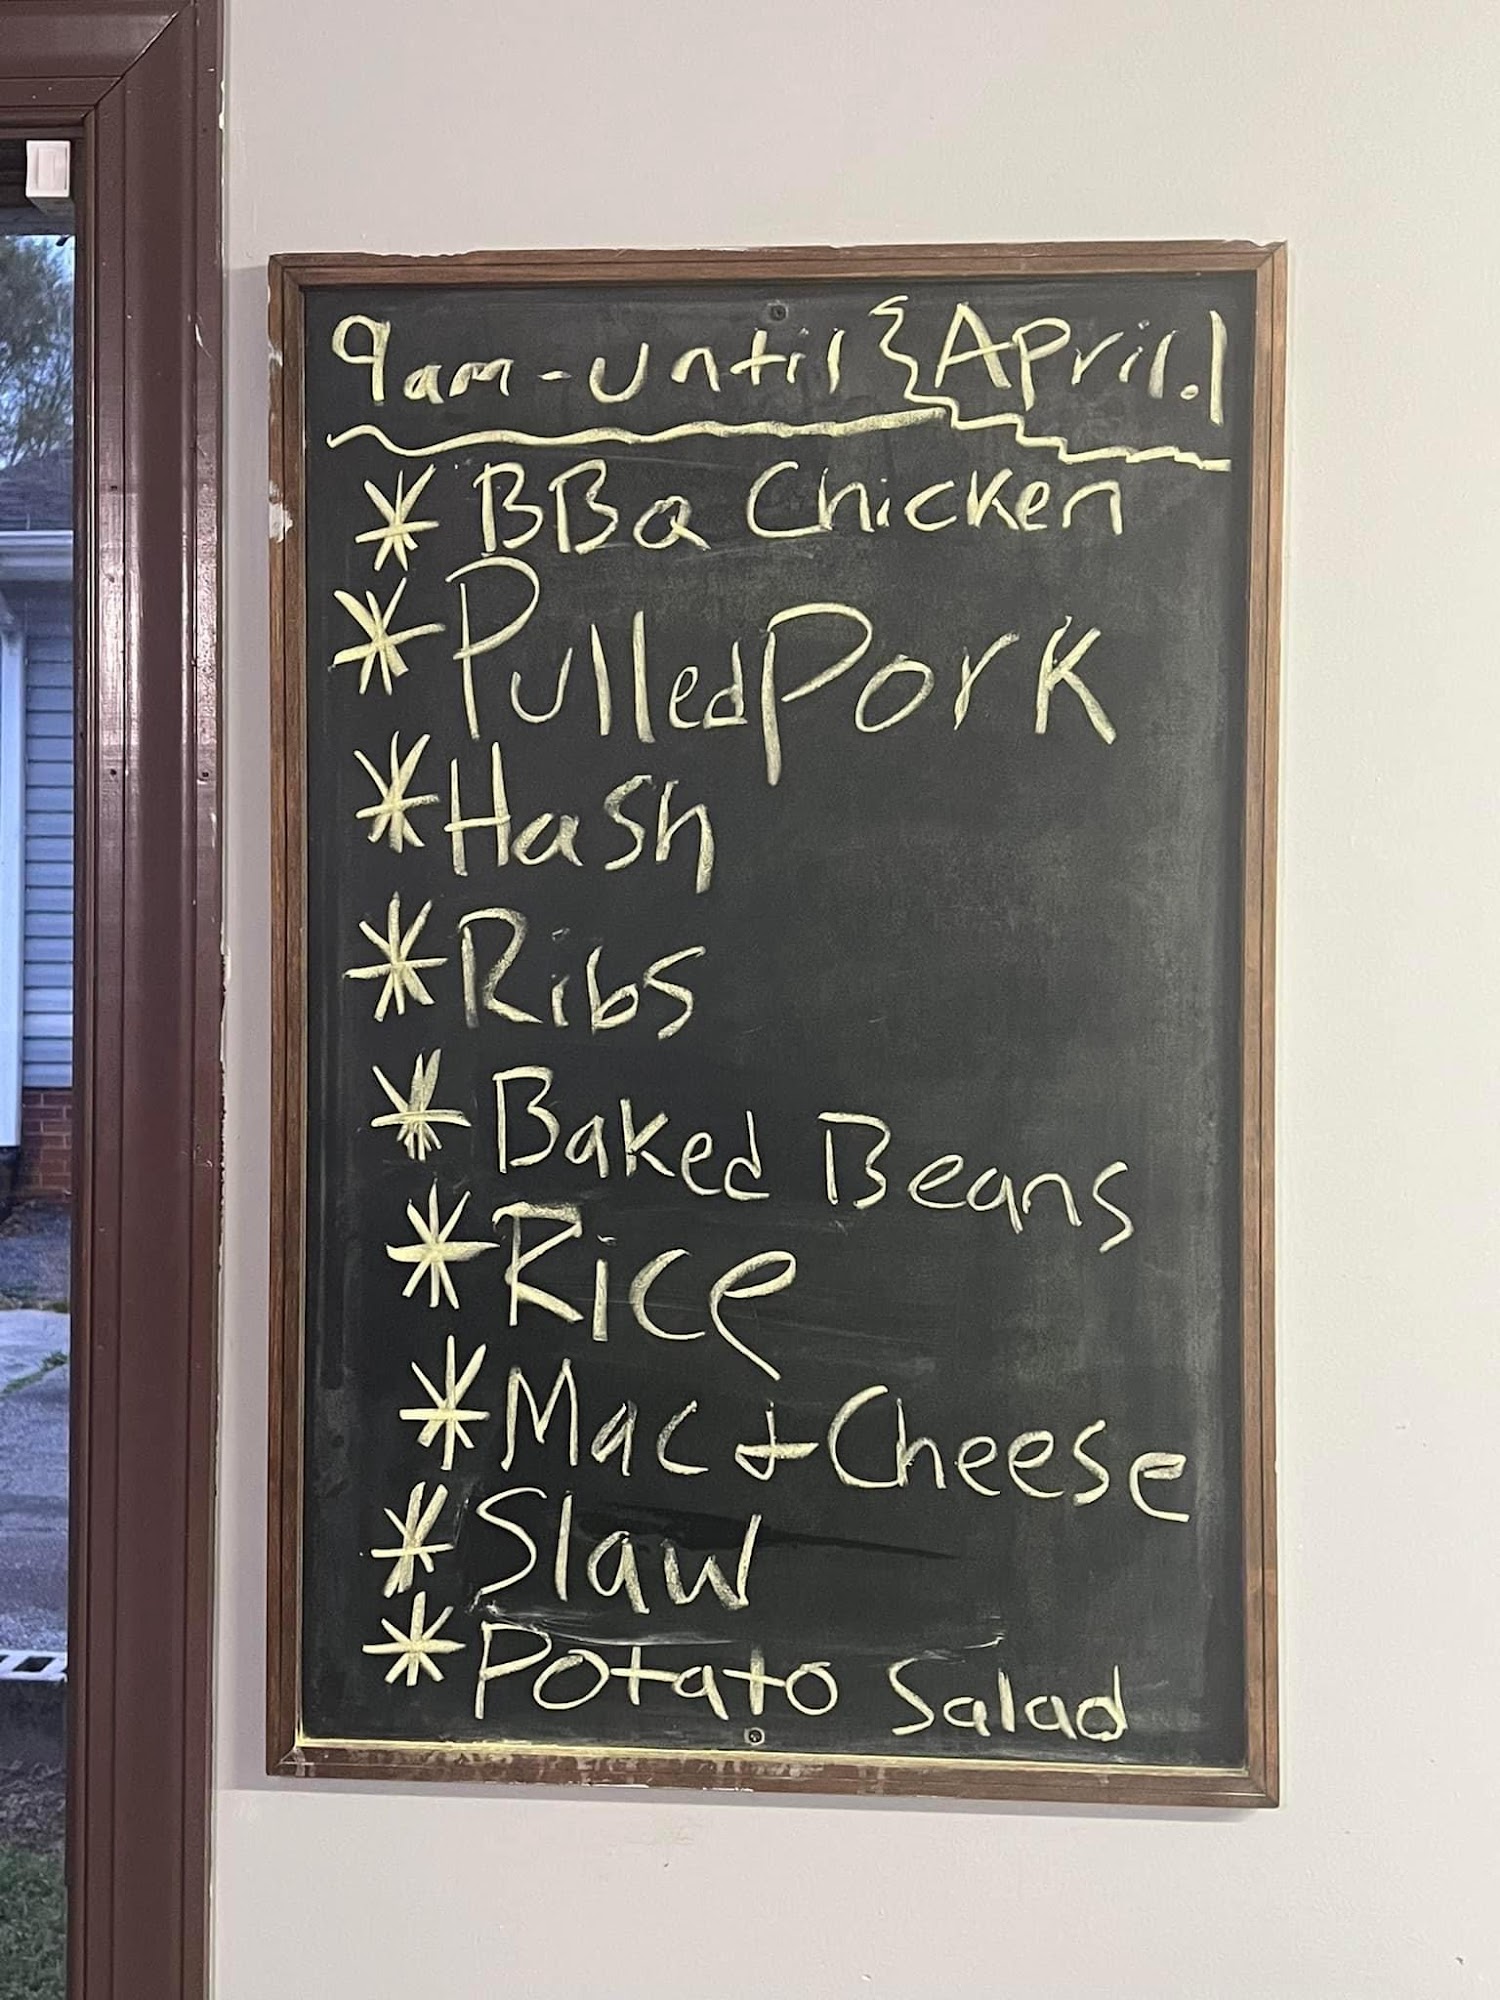 9am - until { April. |
* BBQ Chicken
* Pulled Pork
* Hash
* Ribs
* Baked Beans
* Rice
* Mac + Cheese
* Slaw
* Potato Salad